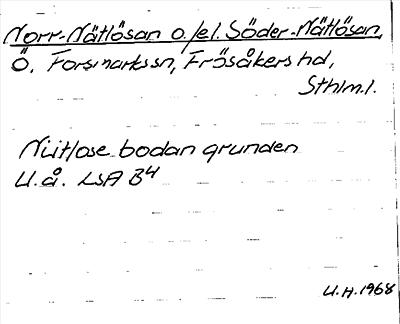 Norr-Nätlösan o./el. Söder-Nätlösan,
Ö. Forsmarkssn, Frösåkers hd,
Sthlm.l.
Nütlose bodan grunden
U.å. LSA B4
U.H.1968